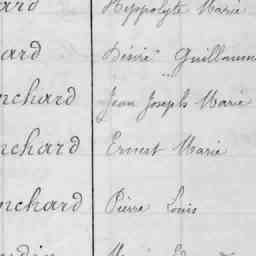 ard Hippolyte Marie
ard Désiré Guillaume
nchard Jean Joseph Marie
nchard Ernest Marie
nchard Pierre Louis